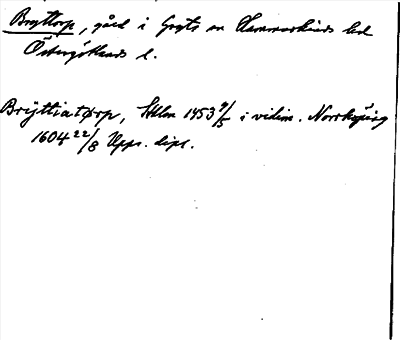 Bryttorp, gård i Gryts sn Hammarkinds hd
Östergötlands l.
Bryttiatorp, Sthlm 1453 9/5 i vidim. Norrköping
1604 22/8 Upps. dipl.